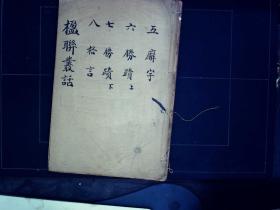 五廨宇
六勝蹟上
七勝蹟下
八格言
楹聯叢話